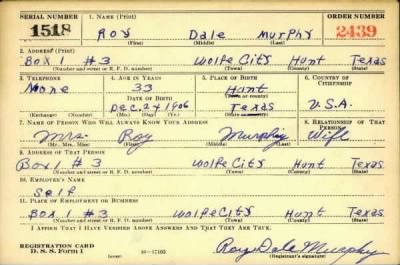 SERIAL NUMBER 1. NAME (Print) ORDER NUMBER
1518 Roy Dale Murphy 2439
(First) (Middle) (Last)
2. ADDRESS (Print)
Box 1 #3 Wolfe City Hunt Texas
(Number and street or R. F. D. number) (Town) (County) (State)
3. TELEPHONE 4. AGE IN YEARS 5. PLACE OF BIRTH 6. COUNTRY OF CITIZENSHIP
None 33 Hunt
DATE OF BIRTH (Town or county)
Dec. 24 1906 Texas U.S.A.
(Exchange) (Number) (Mo.) (Day) (Yr.) (State or country)
7. NAME OF PERSON WHO WILL ALWAYS KNOW YOUR ADDRESS 8. RELATIONSHIP OF THAT PERSON
Mrs. Roy Murphy Wife
(Mr., Mrs., Miss) (First) (Middle) (Last)
9. ADDRESS OF THAT PERSON
Box 1 #3 Wolfe City Hunt Texas
(Number and street or R. F. D. number) (Town) (County) (State)
10. EMPLOYER'S NAME
Self
11. PLACE OF EMPLOYMENT OR BUSINESS
Box 1 #3 Wolfe City Hunt Texas
(Number and street or R. F. D. number) (Town) (County) (State)
I AFFIRM THAT I HAVE VERIFIED ABOVE ANSWERS AND THAT THEY ARE TRUE.
Roy Dale Murphy
REGISTRATION CARD
D. S. S. FORM 1 16—17105 (Registrant's signature)